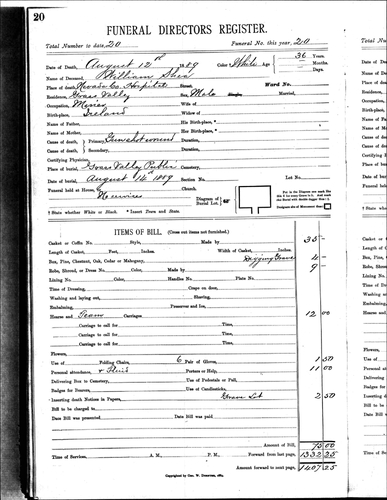 20
FUNERAL DIRECTORS REGISTER.
Total Number to date, 20 Funeral No. this year, 20
Date of Death, August 12th 1889 Color † White Age 36 Years, Months, Days.
Name of Deceased, William Shea
Place of death, Nevada Co. Hospital Ward No.
Residence, Grass Valley Sex Male Single, Married,
Occupation, Miner Wife of
Birth-place, Ireland Widow of
Name of Father, His Birth-place, *
Name of Mother, Her Birth-place, *
Cause of death, Primary, Gunshot wound Duration,
Cause of death, Secondary, Duration,
Certifying Physician,
Place of burial, Grass Valley Public Cemetery,
Date of burial, August 14th 1889 Section No. Lot No.
Funeral held at House, Church.
No services
Diagram of Burial Lot.
† State whether White or Black. * Insert Town and State.
ITEMS OF BILL. (Cross out items not furnished.)
Casket or Coffin No. Style, Made by 35 -
Length of Casket, Feet, Inches. Width of Casket, Inches.
Box, Pine, Chestnut, Oak, Cedar or Mahogany, Digging Grave 4 -
Robe, Shroud, or Dress No. Color, Made by 9 -
Lining No. Color, Handles No. Plate No.
Time of Dressing, Crape on door,
Washing and laying out, Shaving,
Embalming, Preserver and Ice,
Hearse and Team Carriages 12 00
Carriage to call for Time,
Carriage to call for Time,
Carriage to call for Time,
Carriage to call for Time,
Flowers,
Use of Folding Chairs, 6 Pair of Gloves, 1 50
Personal attendance, Porters or Help, 11 00
Delivering Box to Cemetery, Use of Pedestals or Pall,
Badges for Bearers, Use of Candlesticks,
Inserting death Notices in Papers, Grave Lot 2 50
Bill to be charged to
Date Bill was presented Date Bill was paid
Amount of Bill, 75 00
Time of Services, A. M., P. M. Forward from last page, 1332 25
Amount forward to next page, 1407 25